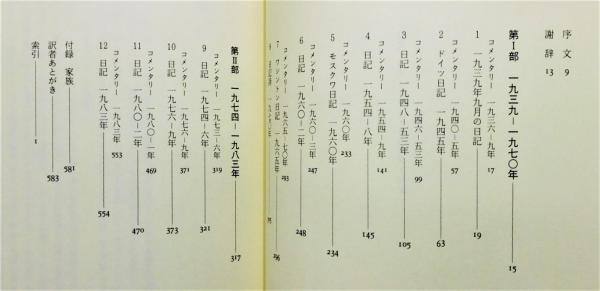 序文 9
謝辞 13
第Ⅰ部 一九三九-一九七〇年 15
コメンタリー 一九三六-九年 17
1 一九三九年九月の日記 19
コメンタリー 一九四〇-五年 57
2 ドイツ日記 一九四五年 63
コメンタリー 一九四六-五三年 99
3 日記 一九四八-五三年 105
コメンタリー 一九五四-九年 141
4 日記 一九五四-八年 145
コメンタリー 一九六〇年 233
5 モスクワ日記 一九六〇年 234
コメンタリー 一九六〇-三年 247
6 日記 一九六〇-二年 248
コメンタリー 一九六五-七〇年 293
7 ワシントン日記 一九六五年 296
第Ⅱ部 一九七四-一九八三年 317
コメンタリー 一九七三-六年 319
9 日記 一九七四-六年 321
コメンタリー 一九七六-九年 371
10 日記 一九七六-九年 373
コメンタリー 一九八〇-二年 469
11 日記 一九八〇-二年 470
コメンタリー 一九八三年 553
12 日記 一九八三年 554
付録 家族 581
訳者あとがき 583
索引 1